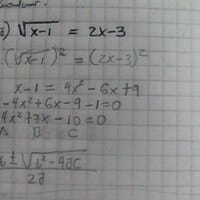 a) √x-1 = 2x-3
(√x-1)² = (2x-3)²
x-1 = 4x²-6x+9
-4x²+6x-9-1=0
4x²+7x-10=0
A B C
b ± √b²-4ac
2a